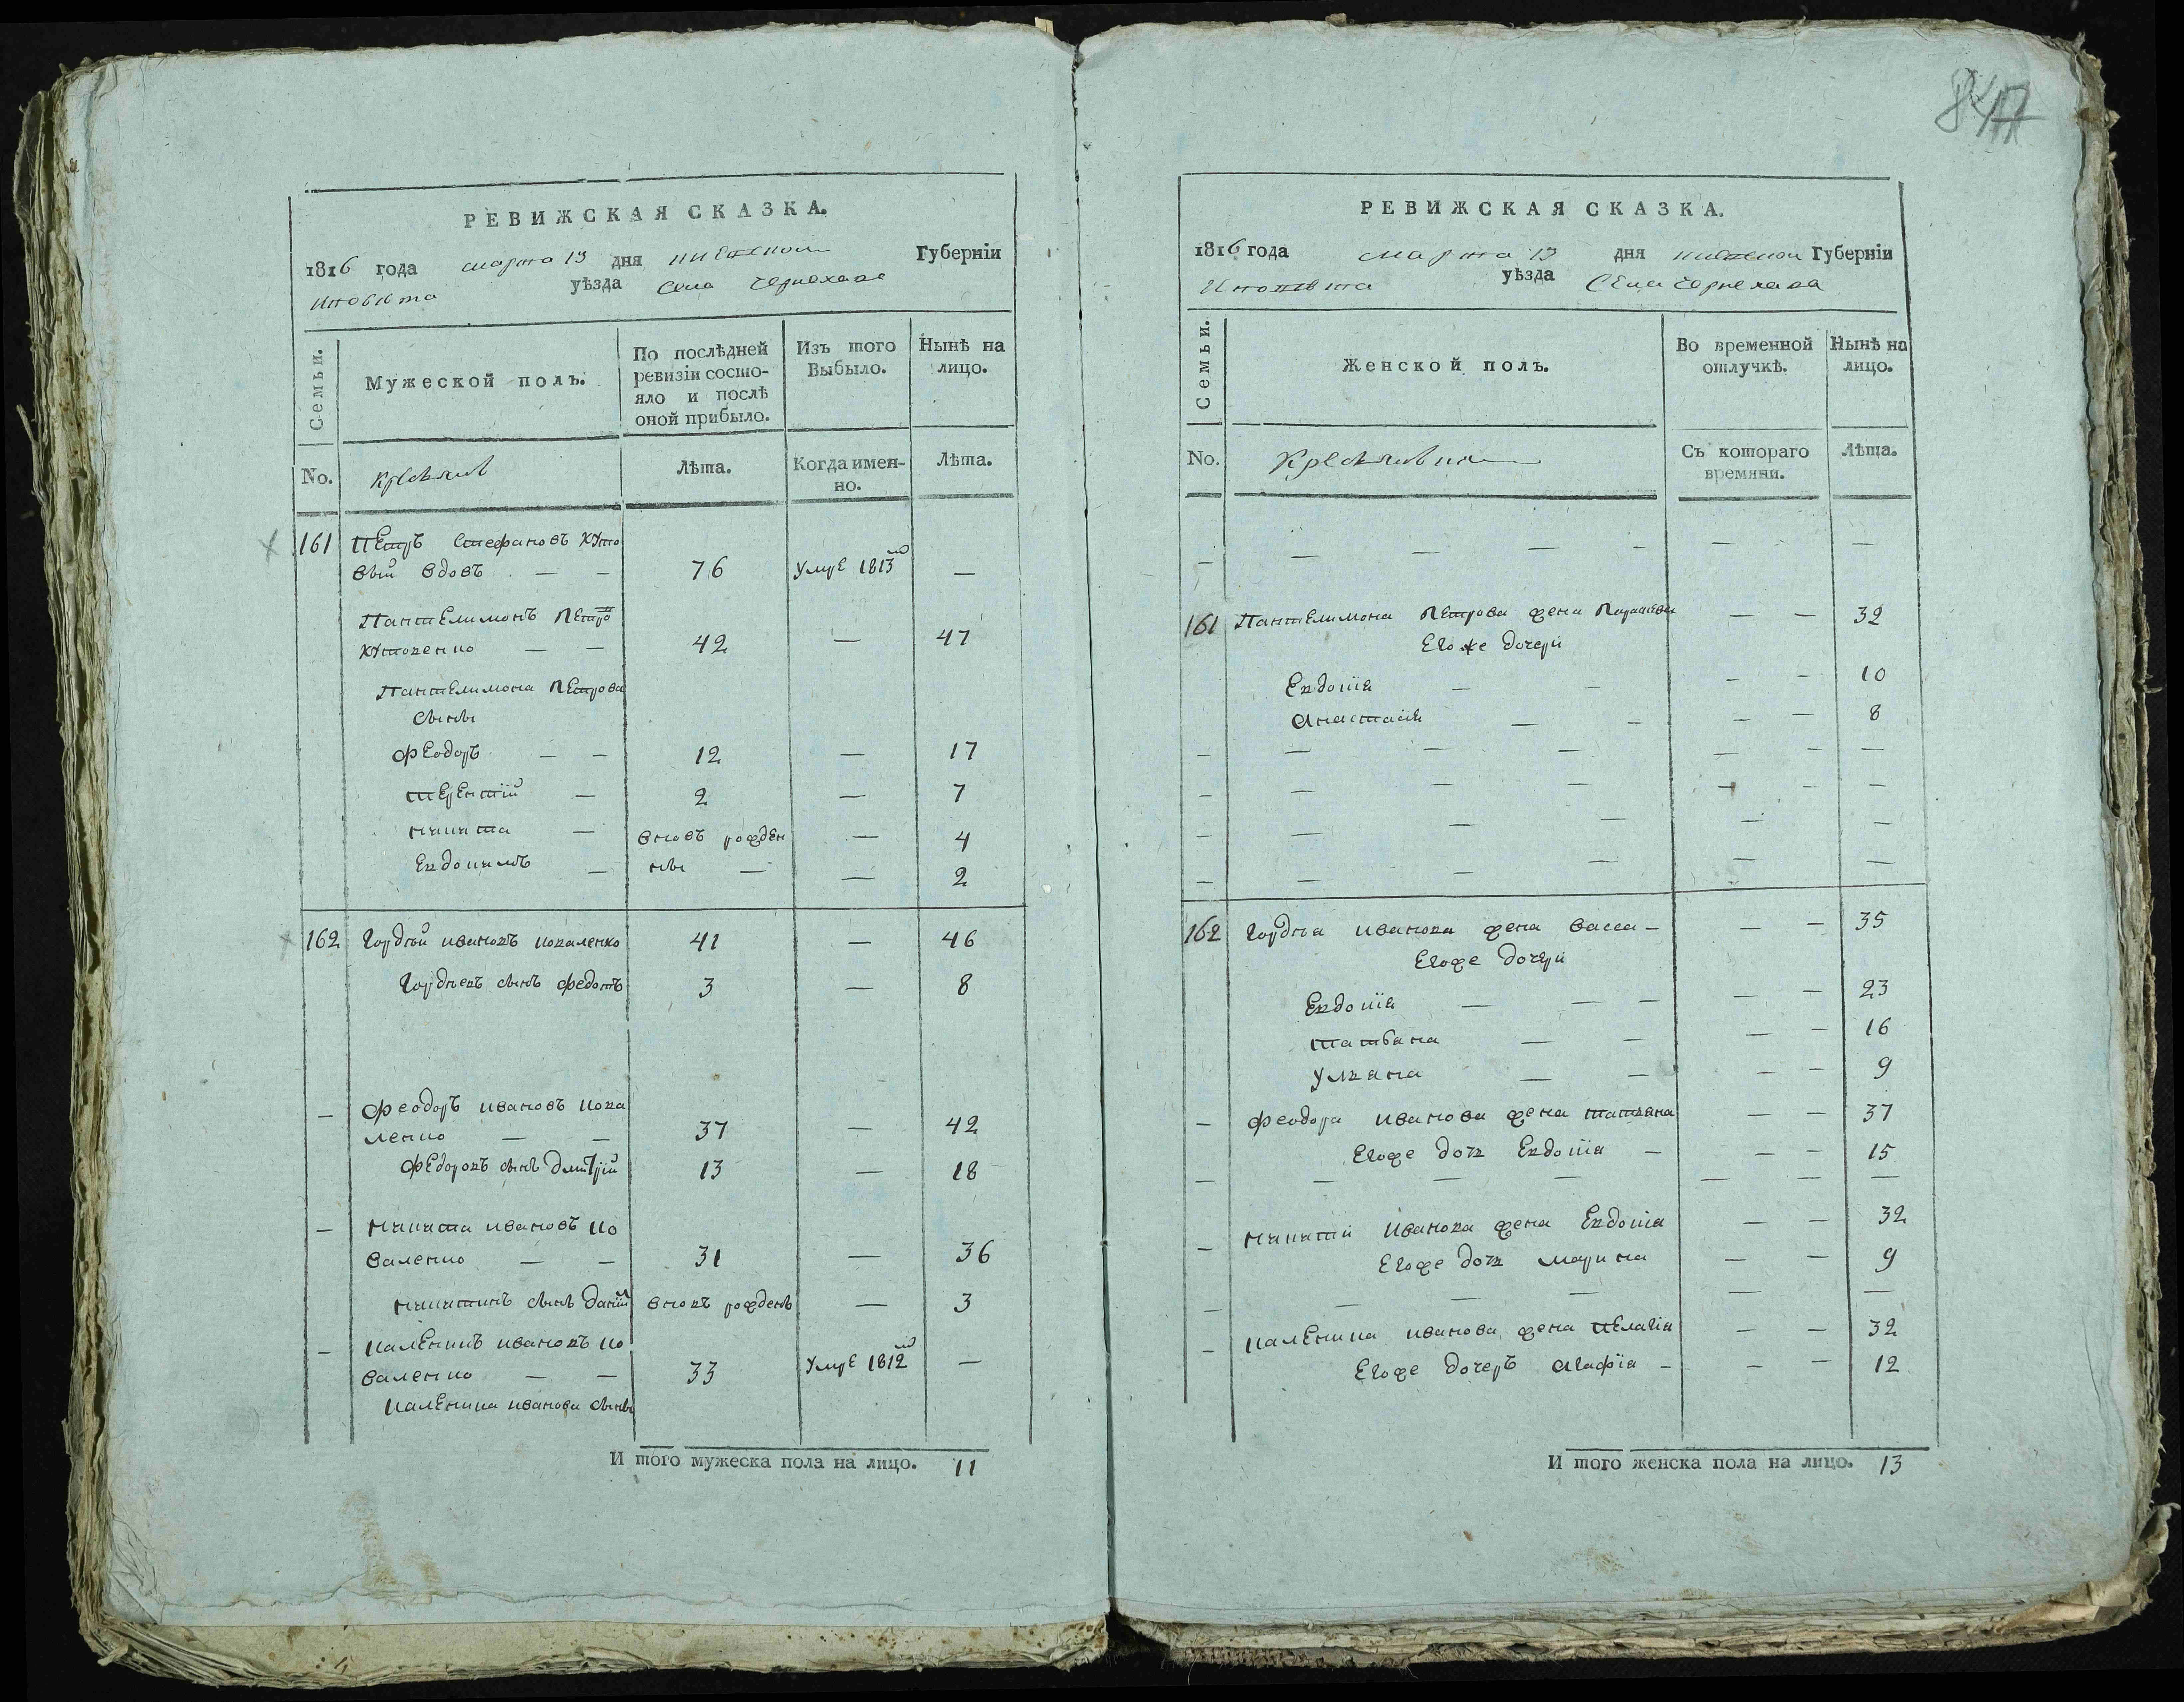 847
РЕВИЖСКАЯ СКАЗКА.
1816 года марта 13 дня киевской Губерніи
уѣзда села Черняхова
Семьи.
Мужеской полъ.
По послѣдней ревизіи состо-
яло и послѣ
оной прибыло.
Изъ того
Выбыло.
Нынѣ на
лицо.
No.
Лѣта.
Когда имен-
но.
Лѣта.
161 Петръ Стефановъ Куто
вый вдовъ — — 76 умре 1813го —
Пантелимонъ Петро
Кутовенко — — 42 — 47
Пантелимона Петрова
сыны
Феодоръ — — 12 — 17
Терентій — 2 — 7
Никита — вновь рожден — 4
Евдокимъ — ны — — 2
162 Гордѣй Ивановъ Коваленко 41 — 46
Гордѣевъ сынъ Федотъ 3 — 8
— Феодоръ Ивановъ Кова
ленко — — 37 — 42
Федоровъ сынъ Дмитрій 13 — 18
— Никита Ивановъ Ко
валенко — — 31 — 36
Никитинъ сынъ Даніил вновь рожденъ — 3
— Каленикъ Ивановъ Ко
валенко — — 33 умре 1812го —
Каленика Иванова сыны
И того мужеска пола на лицо. 11
РЕВИЖСКАЯ СКАЗКА.
1816 года марта 13 дня киевской Губерніи
уѣзда Села Черняхова
Семьи.
Женской полъ.
Во временной
отлучкѣ.
Нынѣ на
лицо.
No.
Съ котораго
времяни.
Лѣта.
— — — — — — —
161 Пантелимона Петрова жена Параскева — — 32
Его же дочери
Евдокія — — — — 10
Анастасія — — — — 8
— — — — — — —
— — — — — — —
— — — — — —
— — — — — —
162 Гордѣя Иванова жена Васса — — — 35
Егоже дочери
Евдокія — — — — — 23
Татьяна — — — — 16
Ульяна — — — — 9
— Феодора Иванова жена Татьяна — — 37
Егоже дочь Евдокія — — — 15
— — — — — — —
— Никиты Иванова жена Евдокія — — 32
Егоже дочь Марина — 9
— — — — — —
— Каленика Иванова жена Пелагія — — 32
Егоже дочеръ Агафія — — — 12
И того женска пола на лицо. 13